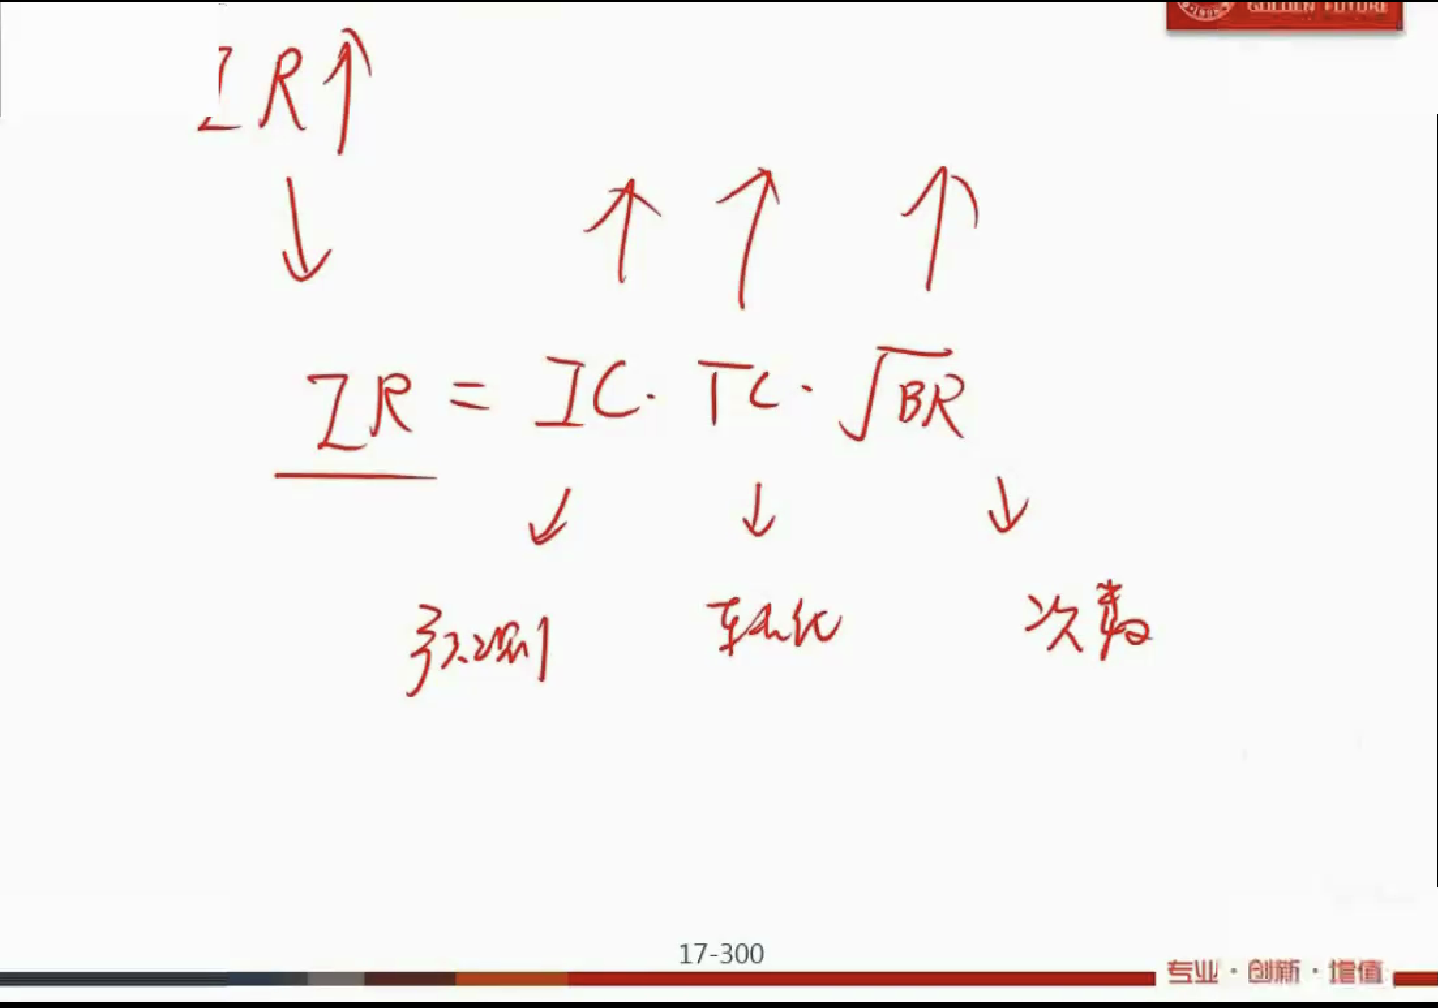 GOLDEN FUTURE
IR↑
↓
↑ ↑ ↑
IR = IC · TC · √BR
↓ ↓ ↓
预测 转化 次数
17-300
专业 · 创新 · 增值